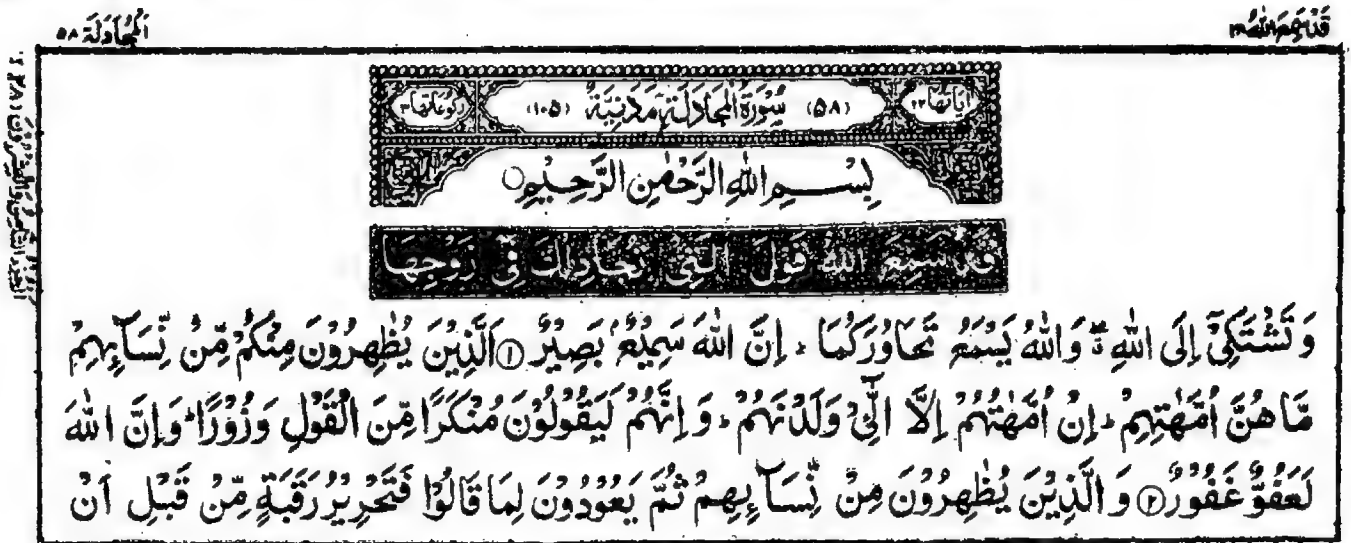 قد سمع الله ۲۸
المجادلة ۵۸
اٰیاتها ۲۲ (۵۸) سُوْرَةُ الْمُجَادَلَةِ مَدَنِيَّةٌ (۱۰۵) رکوعاتها ۳
بِسْــــمِ اللّٰهِ الرَّحْمٰنِ الرَّحِيْمِ ○
قَدْ سَمِعَ اللّٰهُ قَوْلَ الَّتِىْ تُجَادِلُكَ فِىْ زَوْجِهَا
وَ تَشْتَكِىْٓ اِلَى اللّٰهِ ۖ وَ اللّٰهُ يَسْمَعُ تَحَاوُرَكُمَا ؕ اِنَّ اللّٰهَ سَمِيْعٌۢ بَصِيْرٌ ۝۱ اَلَّذِيْنَ يُظٰهِرُوْنَ مِنْكُمْ مِّنْ نِّسَآىِٕهِمْ
مَّا هُنَّ اُمَّهٰتِهِمْ ؕ اِنْ اُمَّهٰتُهُمْ اِلَّا الّٰٓـِٔىْ وَلَدْنَهُمْ ؕ وَ اِنَّهُمْ لَيَقُوْلُوْنَ مُنْكَرًا مِّنَ الْقَوْلِ وَ زُوْرًا ؕ وَ اِنَّ اللّٰهَ
لَعَفُوٌّ غَفُوْرٌ ۝۲ وَ الَّذِيْنَ يُظٰهِرُوْنَ مِنْ نِّسَآىِٕهِمْ ثُمَّ يَعُوْدُوْنَ لِمَا قَالُوْا فَتَحْرِيْرُ رَقَبَةٍ مِّنْ قَبْلِ اَنْ